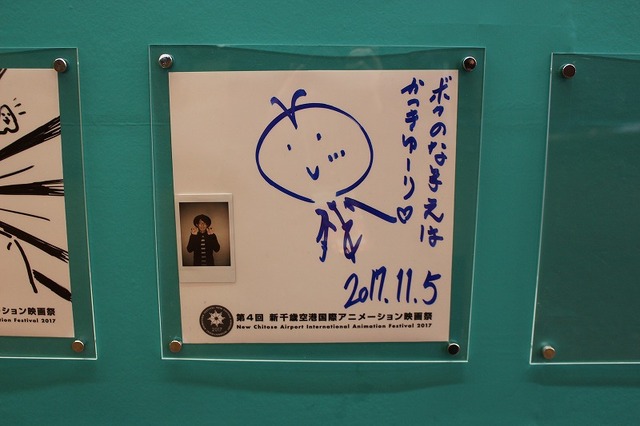 ボクのなまえは
かつきゆーり♡
2017.11.5
2017
第4回 新千歳空港国際アニメーション映画祭
New Chitose Airport International Animation Festival 2017
ーション映画祭
nation Festival 2017